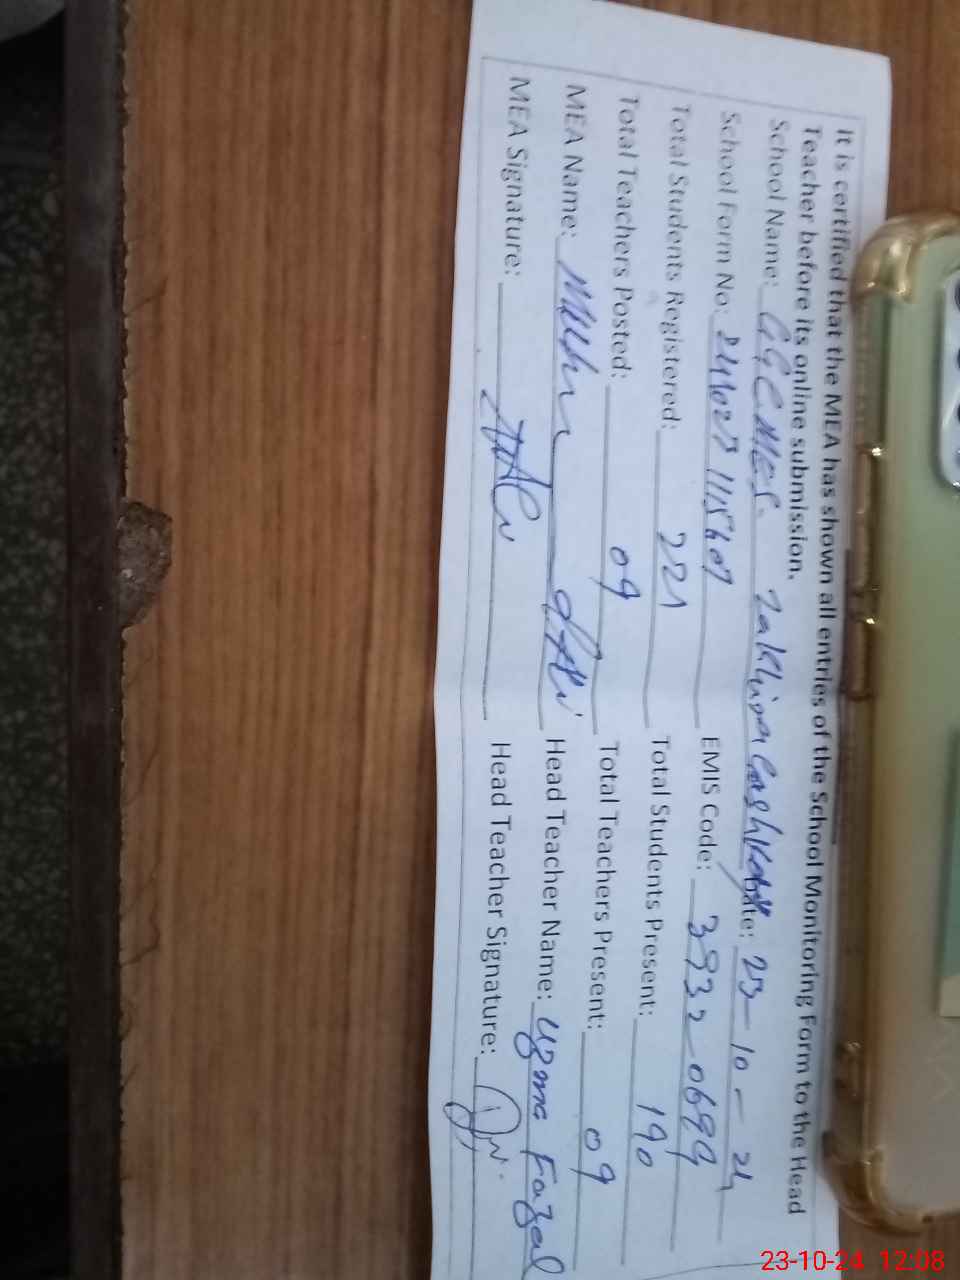 It is certified that the MEA has shown all entries of the School Monitoring Form to the Head
Teacher before its online submission.
School Name: GGCMES. Date: 23-10-24
School Form No: EMIS Code: 3932-0699
Total Students Registered: 221 Total Students Present: 190
Total Teachers Posted: 09 Total Teachers Present: 09
MEA Name: Head Teacher Name: Uzma Fazal
MEA Signature: Head Teacher Signature:
23-10-24 12:08